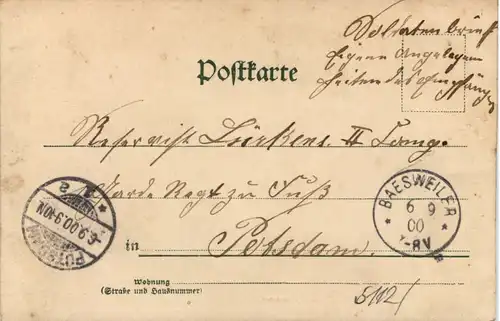 Soldatenbrief
Eigene Angelegen
heiten des Empfängers
Postkarte
Reservist II Comp.
Garde Regt zu Fuß
in Potsdam.
Wohnung
(Straße und Hausnummer)
BAESWEILER
6 9
00
7-8V
POTSDAM
6.9.00.9-10N.